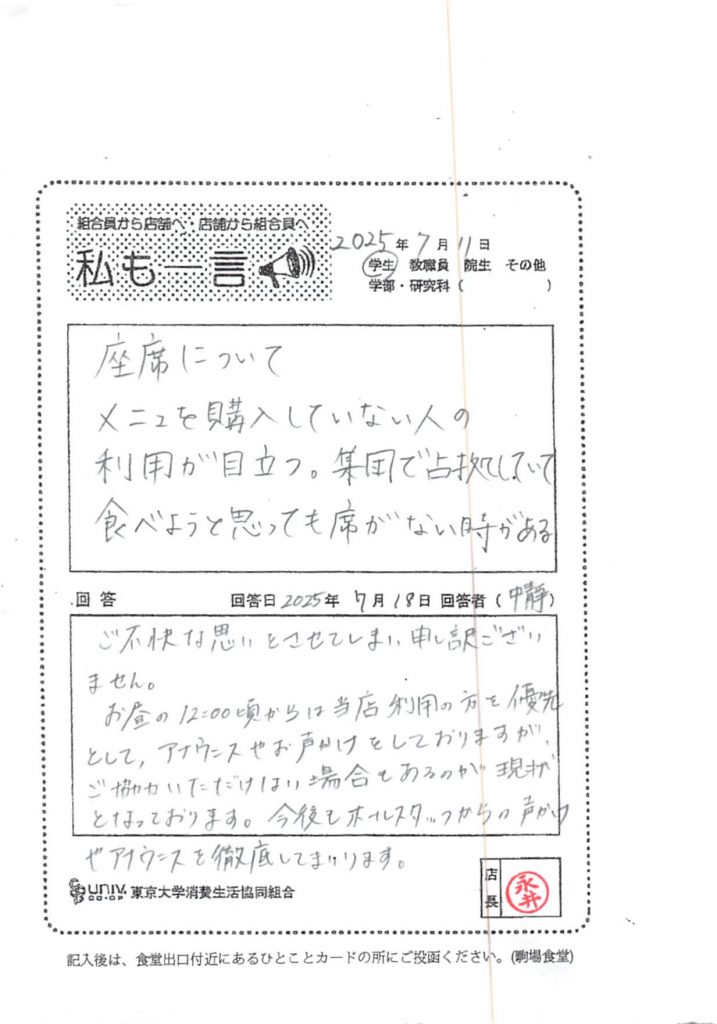 組合員から店舗へ・店舗から組合員へ
私も一言
2025年7月11日
学生 教職員 院生 その他
学部・研究科（ ）
座席について
メニュを購入していない人の
利用が目立つ。集団で占拠してしていて
食べようと思っても席がない時がある
回答 回答日2025年7月18日 回答者（中静）
ご不快な思いをさせてしまい申し訳ござい
ません。
お昼の12:00頃からは当店利用の方を優先
として、アナウンスやお声かけをしておりますが、
ご協力いただけない場合もあるのが現状
となっております。今後もホールスタッフからの声かけ
やアナウンスを徹底してまいります。
univ. CO-OP 東京大学消費生活協同組合
店長
永井
記入後は、食堂出口付近にあるひとことカードの所にご投函ください。(駒場食堂)